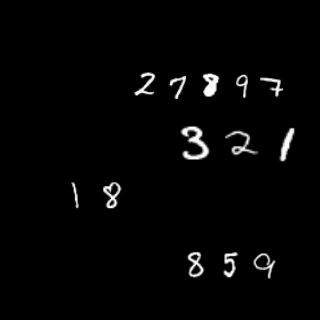 27897
321
18
859